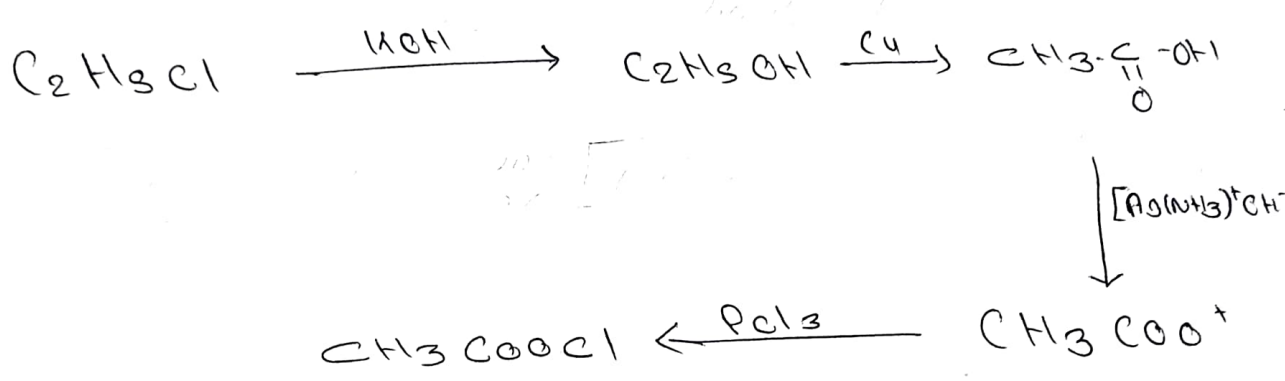 C2H5Cl —KOH→ C2H5OH —Cu→ CH3-C-OH
||
O
↓ [Ag(NH3)+OH-
CH3COOCl ←PCl3— CH3COO+